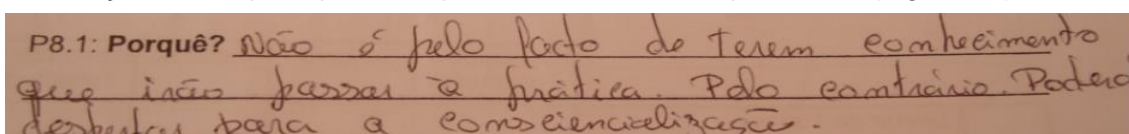 P8.1: Porquê? Não é pelo facto de terem conhecimento
que irão passar à prática. Pelo contrário. Poderá
despertar para a consciencialização.